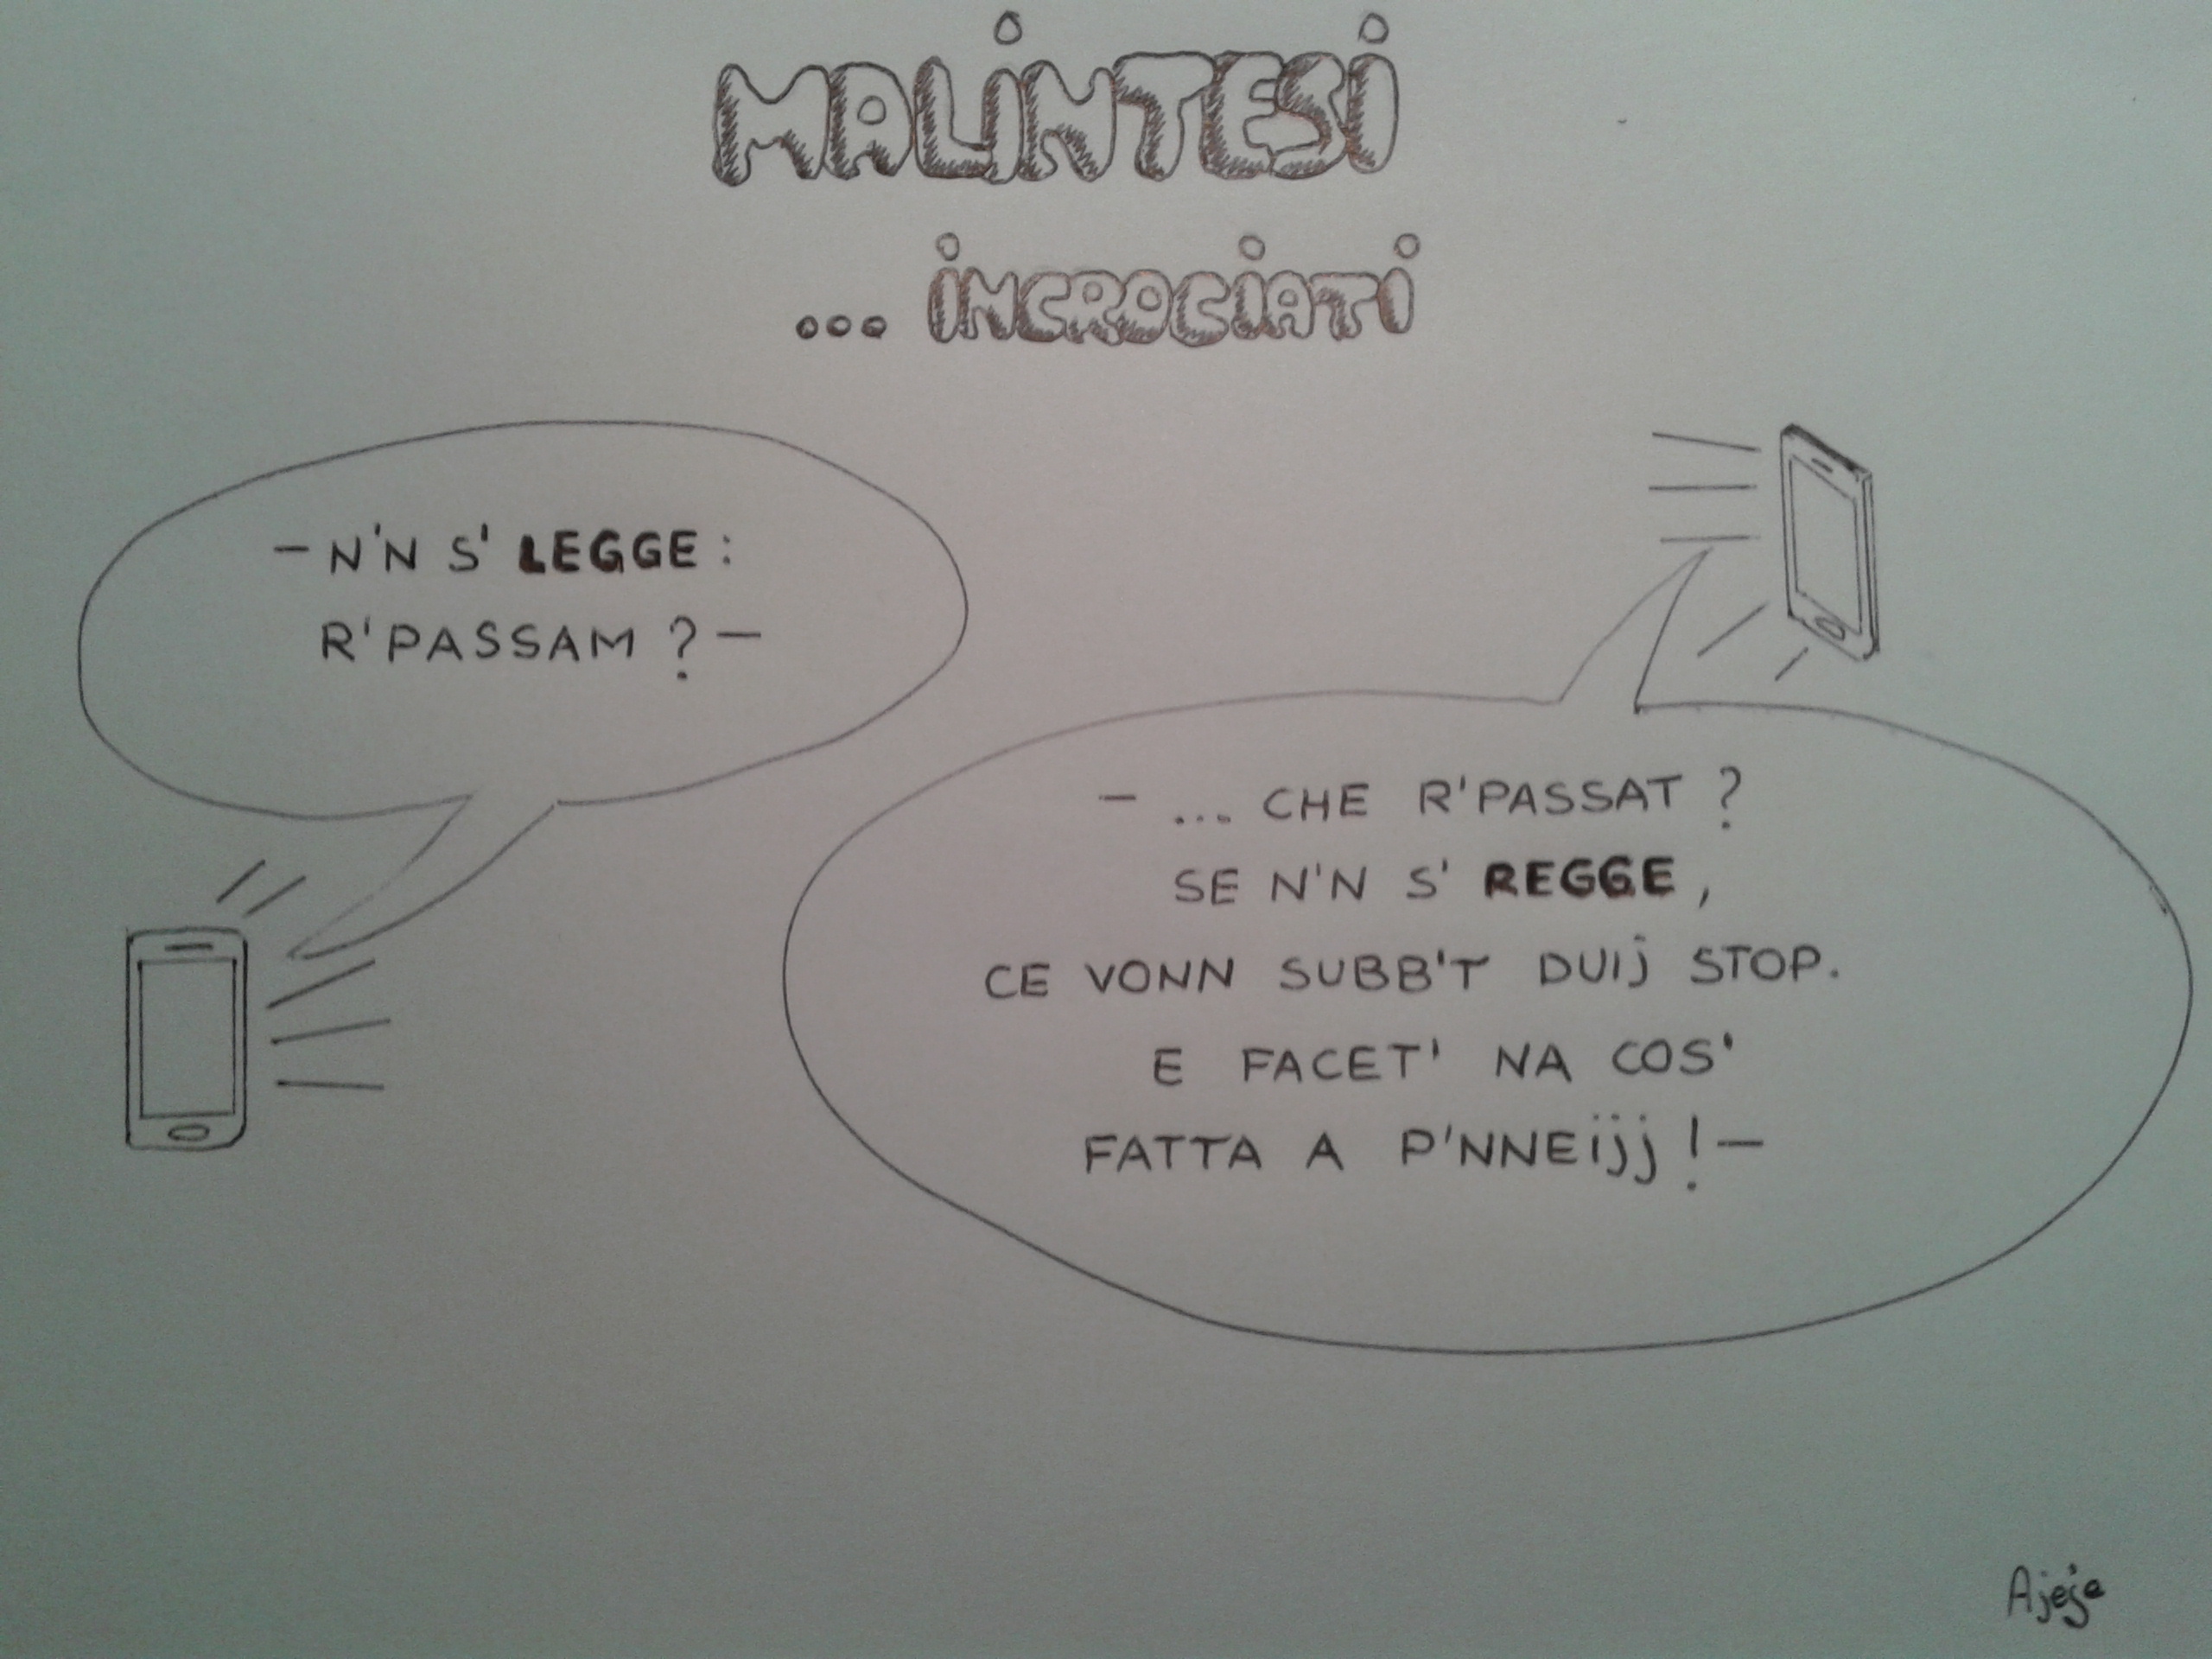 MALiNTESi
... iNCROCiATi
- N'N S' LEGGE:
R'PASSAM ? -
- ... CHE R'PASSAT ?
SE N'N S' REGGE,
CE VONN SUBB'T DUIj STOP.
E FACET' NA COS'
FATTA A P'NNEijj ! -
Ajeje